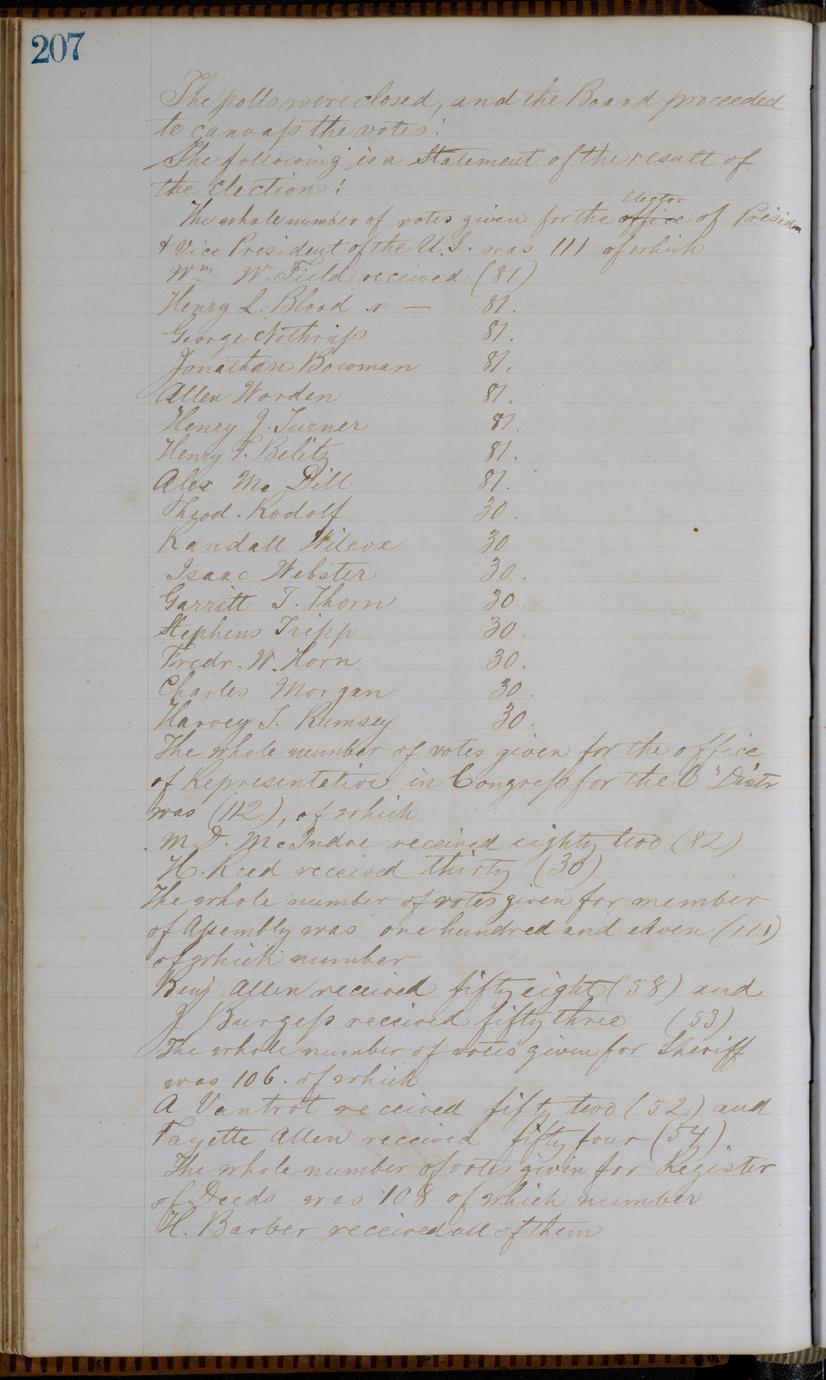 207
The polls were closed, and the Board proceeded
to canvass the votes!
The following is a Statement of the result of
the Election!
Elector
The whole number of votes given for the office of Presiden
& Vice President of the U.S. was 111 of which
Wm W. Field received (81)
Henry L. Blood .r — 81.
George Nothrass 81.
Jonathan Bowman 81.
Allen Worden 81.
Henry J. Turner 81.
Henry F. Belitz 81.
Alex Mc Dill 81.
Theod. Rodolf 30.
Randall Wilcox 30
Isaac Webster 30.
Garritt T. Thorn 30
Stephens Tripp 30.
Fredr. W. Horn 30.
Charles Morgan 30.
Harvey T. Rumsey 30.
The whole number of votes given for the office
of Representative in Congress for the 6" Distr
was (112), of which
M D. McIndoe received eighty two (82)
H. Reed received thirty (30)
The whole number of votes given for member
of Assembly was one hundred and eleven (111)
of which number
Benj Allen received fifty eight (58) and
J Burgess received fifty three (53)
The whole number of votes given for Sheriff
was 106. of which
A Vantrot received fifty two (52) and
Fayette Allen received fifty four (54)
The whole number of votes given for Register
of Deeds was 108 of which number
H. Barber received all of them